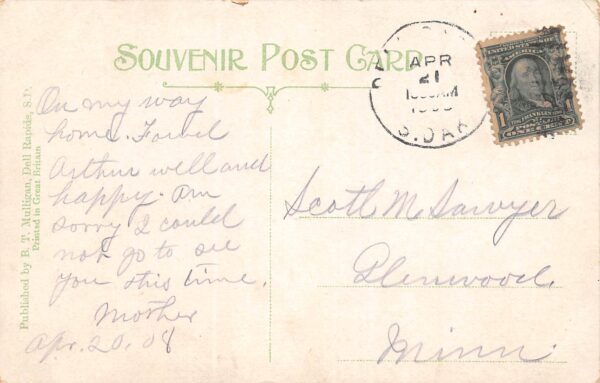 SOUVENIR POST CARD
Published by B. T. Mulligan, Dell Rapids, S.D.
Printed in Great Britain
On my way
home. Found
Arthur well and
happy. Am
sorry I could
not go to see
you this time.
Mother
Apr. 20, 08
APR
21
S. DAK
UNITED STATES OF
AMERICA
1 1
ONE CENT
Scott M Sawyer
Glenwood,
Minn.